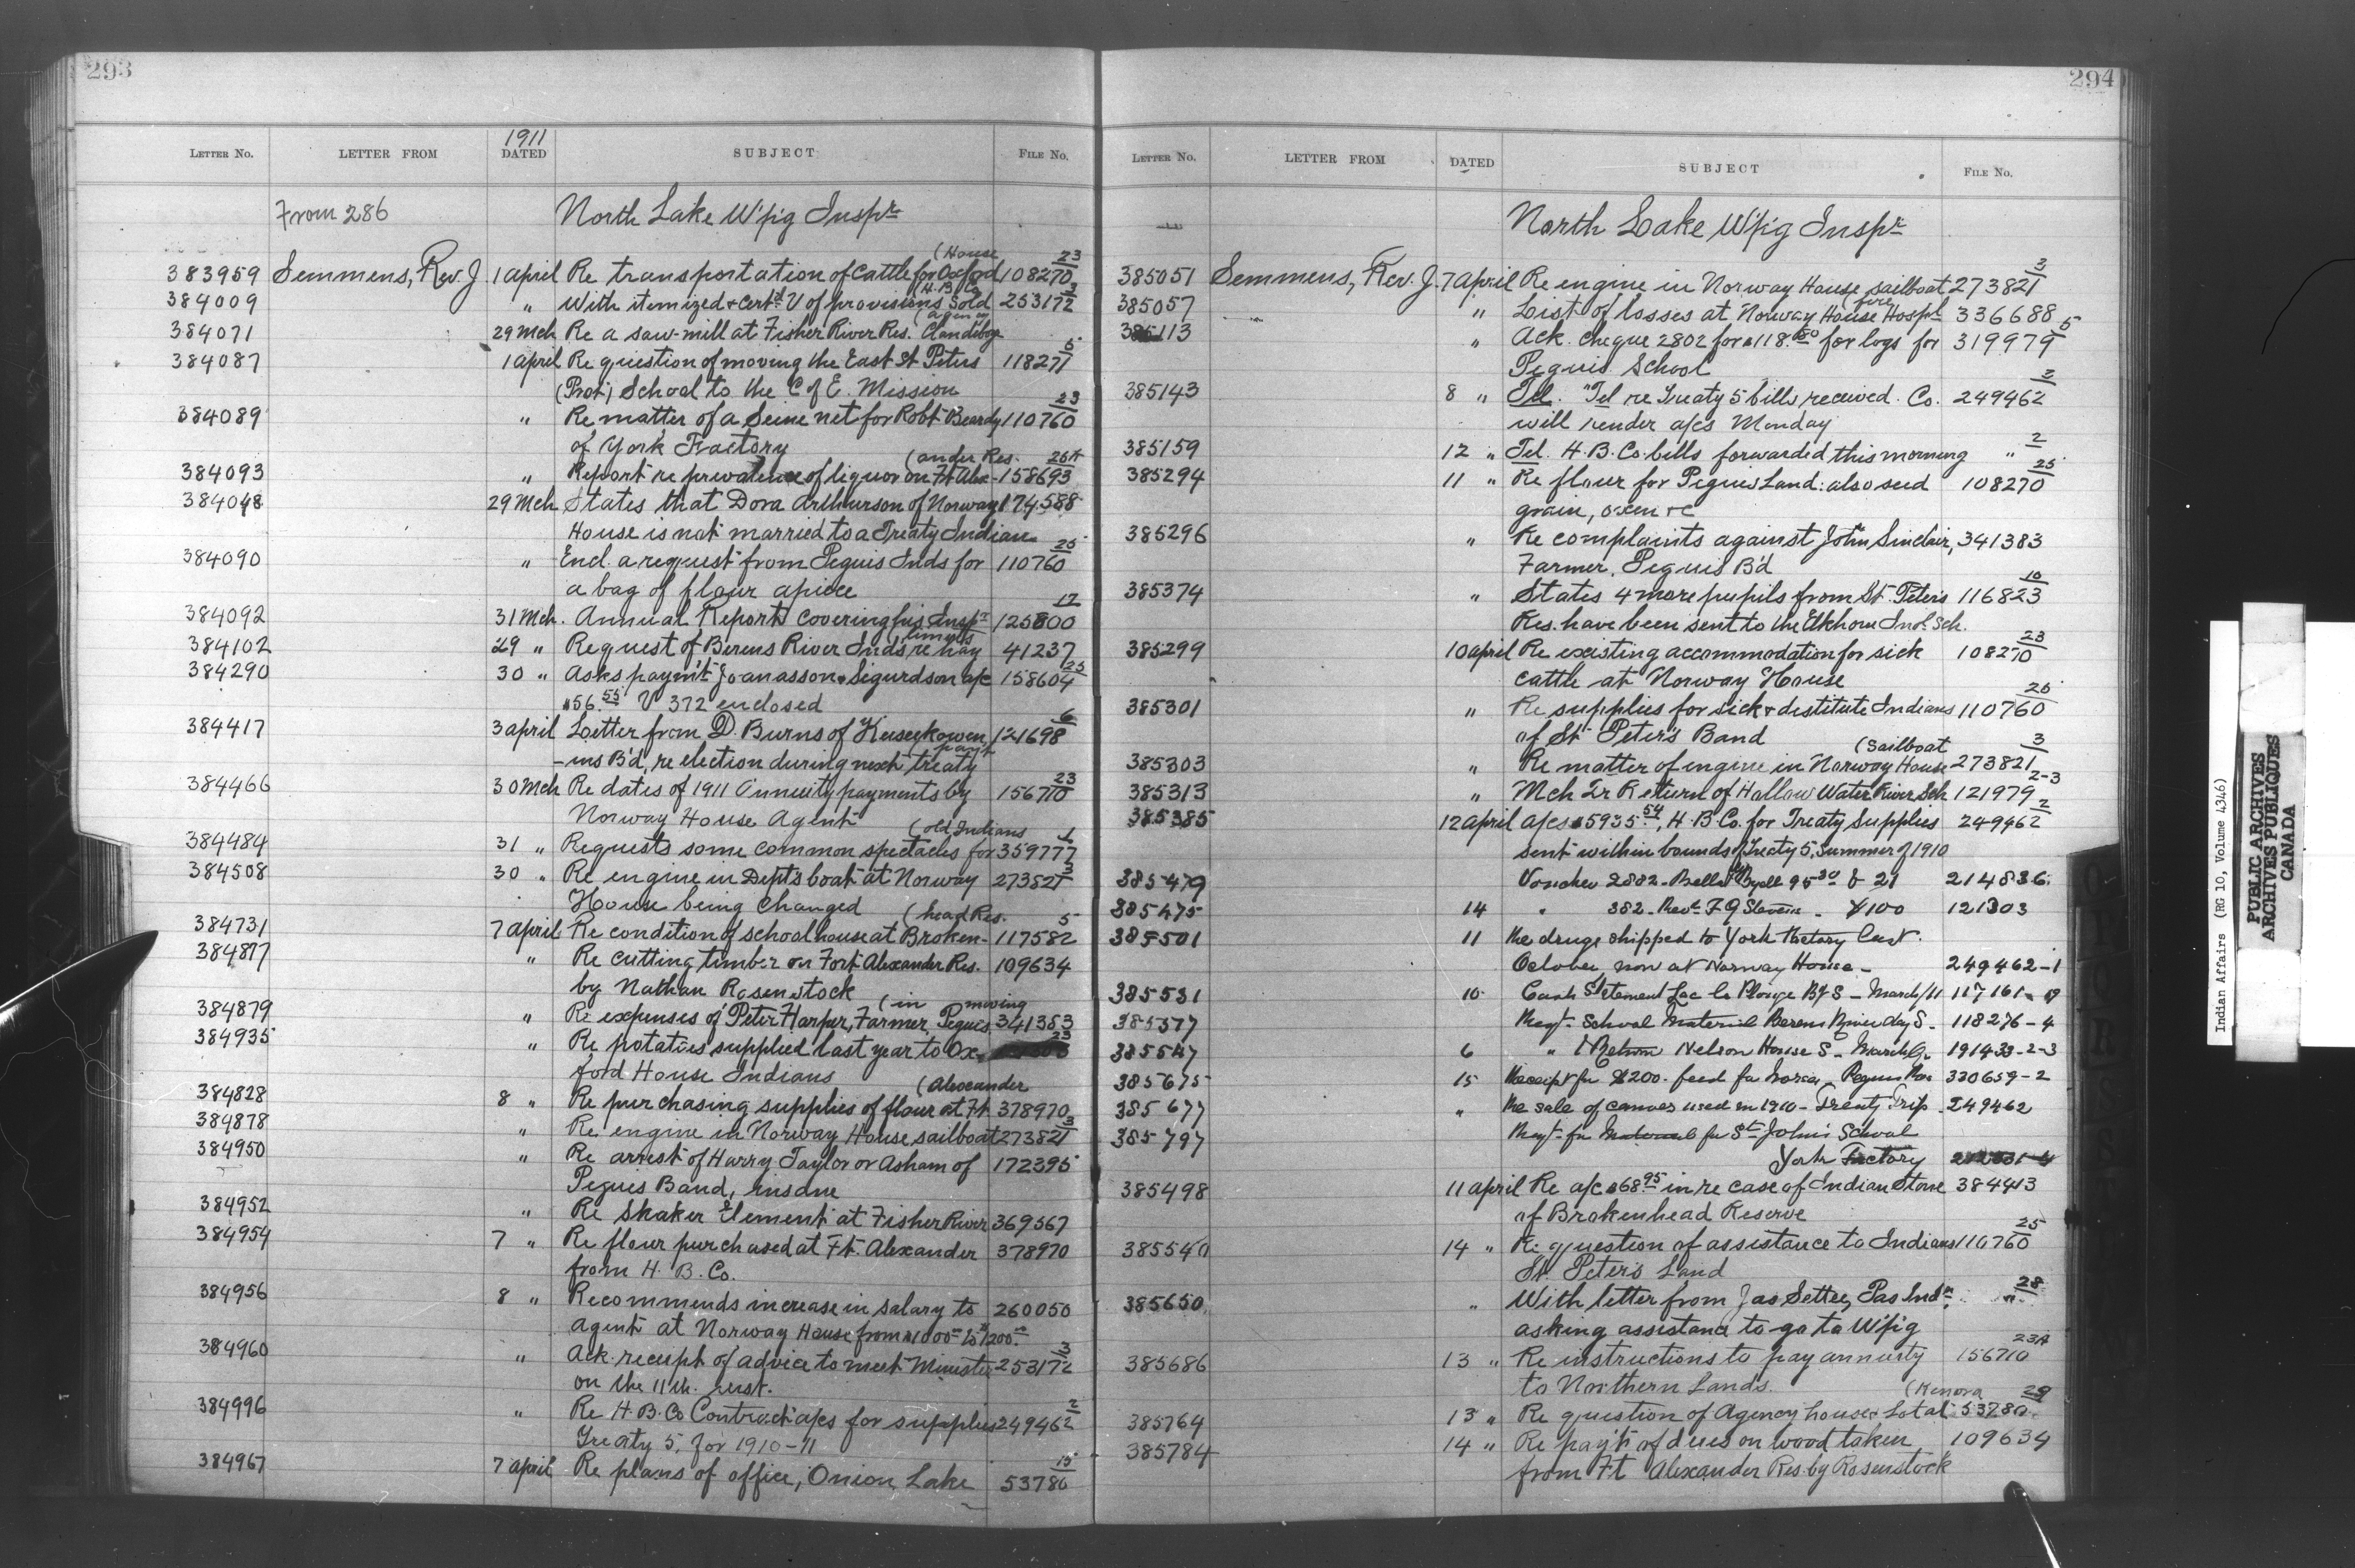 293
1911
LETTER NO. LETTER FROM DATED SUBJECT FILE NO.
From 286 North Lake W'pig Inspr
(House 23
383959 Semmens, Rev. J. 1 April Re transportation of Cattle for Oxford 108270
(H. B. Co. 3
384009 " With itemized & cert'd V of provisions sold 253172
(agency
384071 29 Mch Re a saw-mill at Fisher River Res. Clandeboye
5
384087 1 April Re question of moving the East St Peters 118271
(Prot) School to the C of E. Mission
23
384089 " Re matter of a Seine net for Robt Beardy 110760
of York Factory
(ander Res. 26A
384093 " Report re prevalence of liquor on Ft Alex- 158693
384048 29 Mch States that Dora Arthurson of Norway 174588
House is not married to a Treaty Indian
25
384090 " Encl. a request from Peguis Inds for 110760
a bag of flour apiece
12
384092 31 Mch. Annual Report covering his Inspr 125800
limits
384102 29 " Request of Berens River Inds re hay 41237
25
384290 30 " Asks paym't Joanasson & Sigurdson a/c 158604
$56.55 V 372 enclosed
6
384417 3 April Letter from D. Burns of Keeseekowen 121698
(paym't
-ins B'd, re election during next treaty
23
384466 30 Mch Re dates of 1911 Annuity payments by 156710
Norway House Agent
(old Indians 1
384484 31 " Requests some common spectacles for 359777
3
384508 30 " Re engine in Dept's boat at Norway 273821
House being changed
(head Res. 5
384731 7 April Re condition of school house at Broken- 117582
384877 " Re cutting timber on Fort Alexander Res. 109634
by Nathan Rosenstock
(in moving
384879 " Re expenses of Peter Harper, Farmer, Peguis 341383
23
384935 " Re potatoes supplied last year to Ox-
ford House Indians
(Alexander
384828 8 " Re purchasing supplies of flour at Ft. 378970
3
384878 " Re engine in Norway House sailboat 273821
384950 " Re arrest of Harry Taylor or Asham of 172395
Peguis Band, insane
384952 " Re Shaker Element at Fisher River 369567
384954 7 " Re flour purchased at Ft. Alexander 378970
from H. B. Co.
384956 8 " Recommends increase in salary to 260050
agent at Norway House from $1000 to $1200
3
384960 " Ack. receipt of advice to meet Minister 253172
on the 11th. inst.
2
384996 " Re H.B. Co Contract a/cs for supplies 249462
Treaty 5, for 1910-11
15
384967 7 April Re plans of office, Onion Lake 53786
294
LETTER NO. LETTER FROM DATED SUBJECT FILE NO.
North Lake W'pig Inspr
3
385051 Semmens, Rev. J. 7 April Re engine in Norway House sailboat 273821
(fire
385057 " List of losses at Norway House Hosp'l 336688
5
385113 " Ack. cheque 2802 for $118.50 for logs for 319979
Peguis School
2
385143 8 " Tel. "Tel re Treaty 5 bills received. Co. 249462
will render a/cs Monday
2
385159 12 " Tel. H.B. Co. bills forwarded this morning "
25
385294 11 " Re flour for Peguis Land: also seed 108270
grain, oxen &c
385296 " Re complaints against John Sinclair, 341383
Farmer, Peguis B'd
10
385374 " States 4 more pupils from St. Peters 116823
Res. have been sent to the Elkhorn Indl. Sch.
23
385299 10 April Re existing accommodation for sick 108270
cattle at Norway House
25
385301 " Re supplies for sick & destitute Indians 110760
of St. Peter's Band
(sailboat 3
385303 " Re matter of engine in Norway House 273821
2-3
385313 " Mch Qr Return of Hollow Water River Sch 121979
2
385385 12 April a/cs $5935.54, H.B. Co. for Treaty Supplies 249462
sent within bounds of Treaty 5, Summer of 1910
385479 Voucher 2882 - 95.30 & 21 214836
385475 14 " 382 - 100 121303
385501 11 Re drugs shipped to York Factory last
October now at Norway House - 249462-1
385531 10 Cash Statement Lac la Ronge B/S - March/11 117161-
385577 Reqt. School Material Berens River day S. 118276-4
385547 6 " Return Nelson House S - March Q. 191433-2-3
385675 15 Receipt for $200. feed for horses - Peguis Res 330659-2
385677 " Re sale of canoes used in 1910 - Treaty Trip 249462
385797 Reqt. for Material for St John's School
York Factory
385498 11 April Re a/c $68.95 in re case of Indian Stone 384413
of Brokenhead Reserve
25
385540 14 " Re question of assistance to Indians 110760
St. Peter's Land
28
385650 " With letter from Jas Settee, Pas Indn, "
asking assistance to go to W'pig
23A
385686 13 " Re instructions to pay annuity 156710
to Northern Lands
(Kenora 29
385764 13 " Re question of Agency house & lot at 53780
385784 14 " Re pay't of dues on wood taken 109634
from Ft Alexander Res. by Rosenstock
Indian Affairs (RG 10, Volume 4346)
PUBLIC ARCHIVES
ARCHIVES PUBLIQUES
CANADA